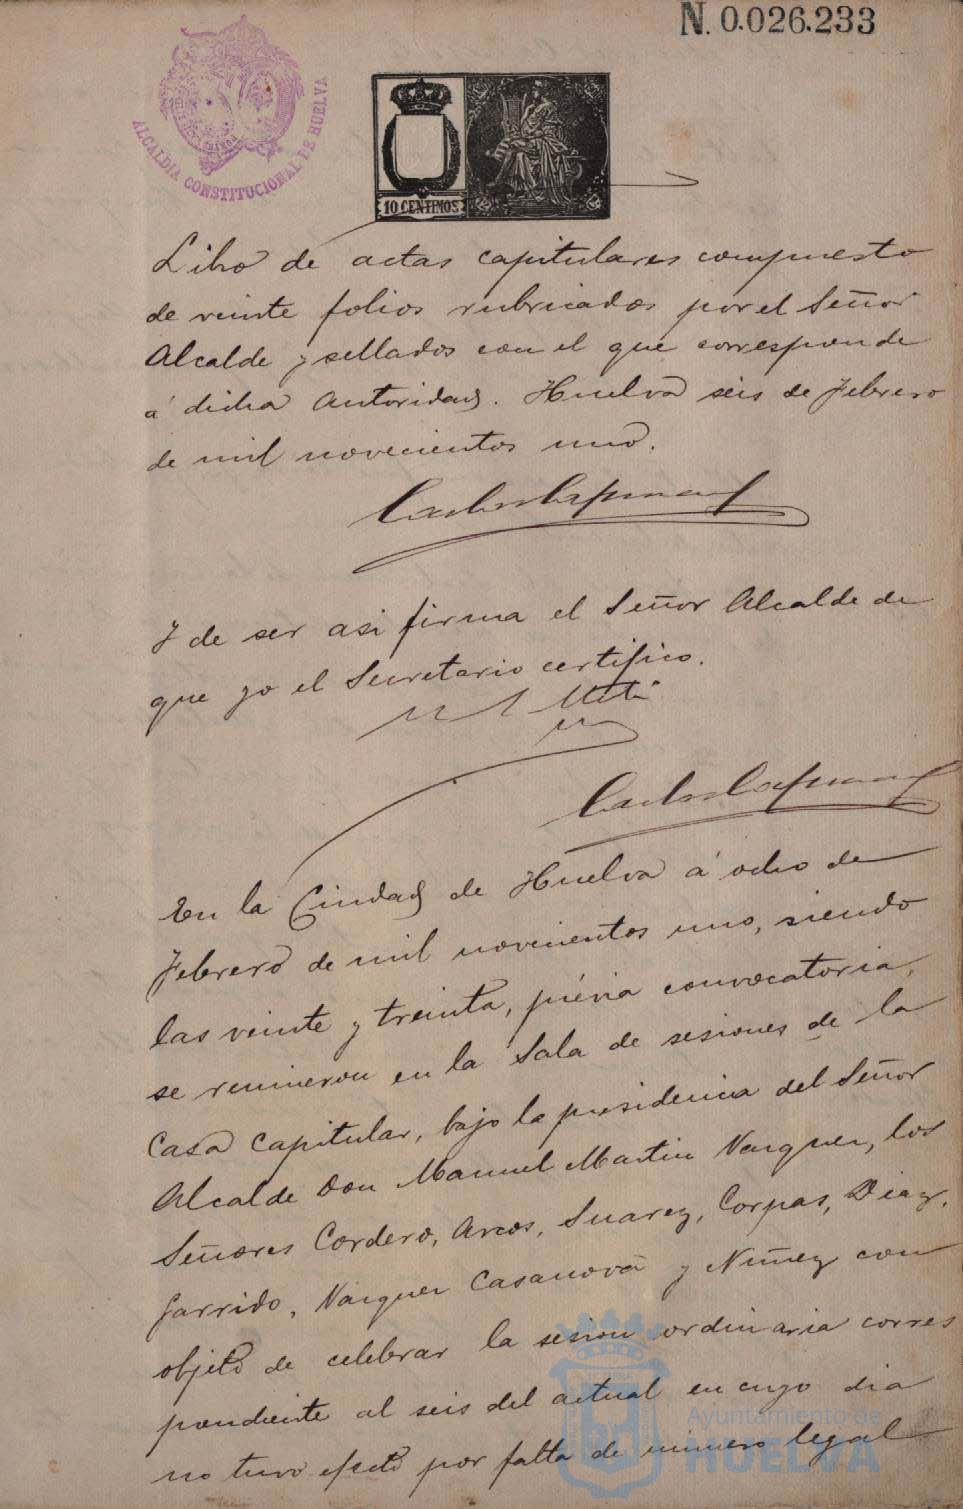 N. 0.026.233
ALCALDIA CONSTITUCIONAL DE HUELVA
10 CENTIMOS
Libro de actas capitulares compuesto
de veinte folios rubricados por el Señor
Alcalde y sellados con el que corresponde
á dicha Autoridad. Huelva seis de Febrero
de mil novecientos uno.
Y de ser asi firma el Señor Alcalde de
que yo el Secretario certifico.
En la Ciudad de Huelva á ocho de
Febrero de mil novecientos uno, siendo
las veinte y treinta, prévia convocatoria,
se reunieron en la Sala de sesiones de la
Casa Capitular, bajo la presidencia del Señor
Alcalde Don Manuel Martin Vazquez, los
Señores Cordero, Arcos, Suarez, Corpas, Diaz,
Garrido, Vazquez Casanova y Nuñez con
objeto de celebrar la sesion ordinaria corres
pondiente al seis del actual en cuyo dia
no tuvo efecto por falta de número legal
Ayuntamiento de
HUELVA